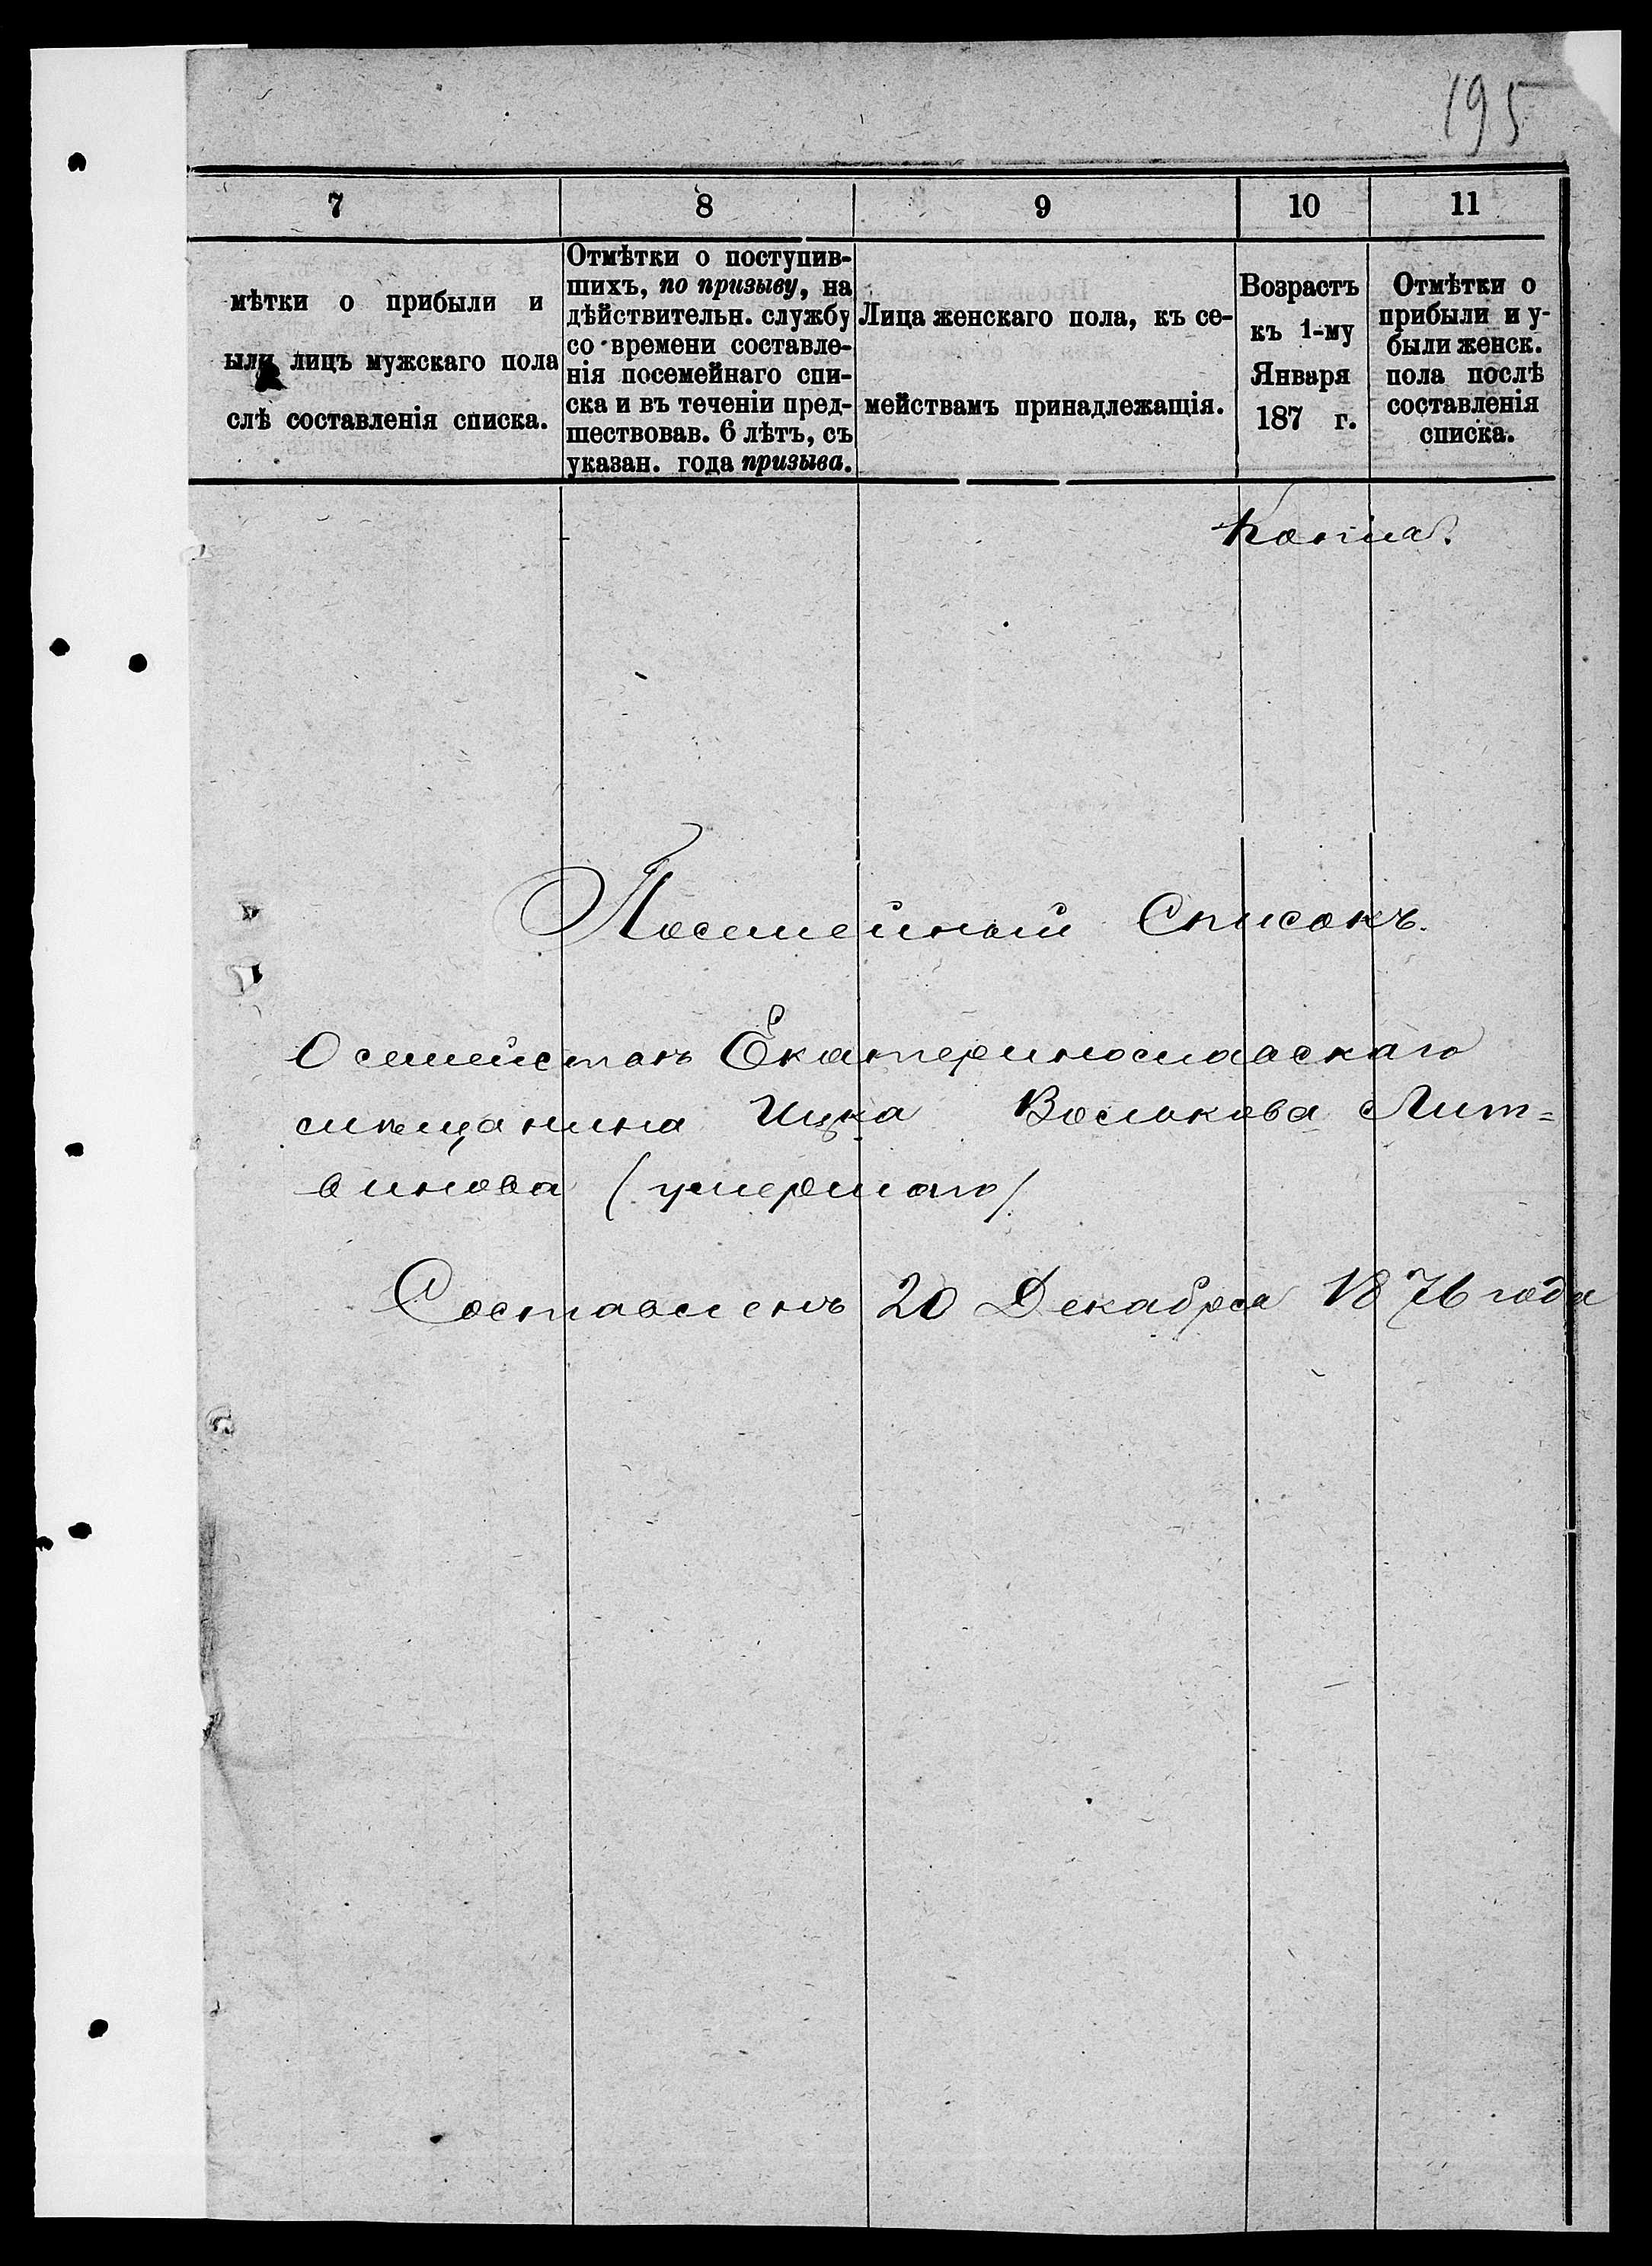 195
7 8 9 10 11
мѣтки о прибыли и
ыли лицъ мужскаго пола
слѣ составленія списка.
Отмѣтки о поступив-
шихъ, по призыву, на
дѣйствительн. службу
со времени составле-
нія посемейнаго спи-
ска и въ теченіи пред-
шествовав. 6 лѣтъ, съ
указан. года призыва.
Лица женскаго пола, къ се-
мействамъ принадлежащія.
Возрастъ
къ 1-му
Января
187 г.
Отмѣтки о
прибыли и у-
были женск.
пола послѣ
составленія
списка.
Копія.
Посемейный Списокъ.
О семействѣ Екатеринославскаго
мѣщанина Ицка Волькова Лит=
винова (умершаго)
Составленъ 20 Декабря 1876 года